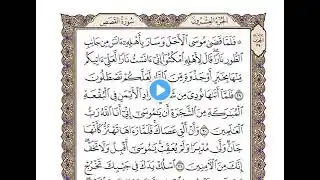 الجزء العشرون سورة القصص
۞ فلما قضى موسى الأجل وسار بأهله ءانس من جانب
الطور نارا قال لأهله امكثوا إني ءانست نارا لعلي ءاتيكم
منها بخبر أو جذوة من النار لعلكم تصطلون
فلما أتاها نودي من الأيمن في البقعة
المباركة من أن يموسى إني أنا الله رب
العلمين ٣٠ وأن ألق عصاك فلما رءاها تهتز كأنها
جان ولى مدبرا ولم يعقب يموسى أقبل ولا تخف
إنك من الأمنين ٣١ اسلك يدك في جيبك تخرج